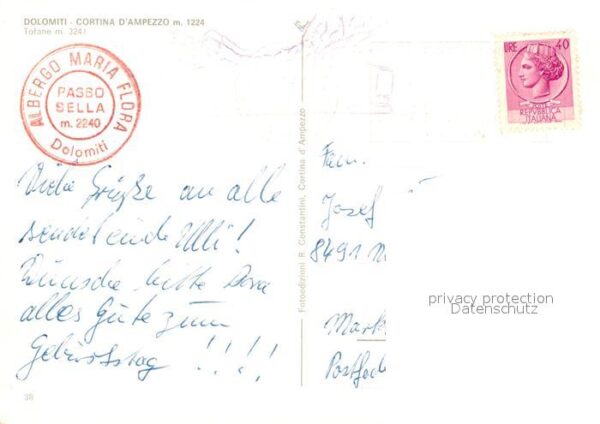 DOLOMITI - CORTINA D'AMPEZZO m. 1224
Tofane m. 3241
ALBERGO MARIA FLORA
PASSO
SELLA
m. 2240
Dolomiti
LIRE 40
REPUBBLICA
ITALIANA
Viele Grüße an alle
sendet eude Ulli!
Wünsche bitte
alles Gute zum
Geburtstag !!!!
Fotoedizioni R. Constantini, Cortina d'Ampezzo
Fam.
Josef
8491
Mark
Postfach
privacy protection
Datenschutz
38